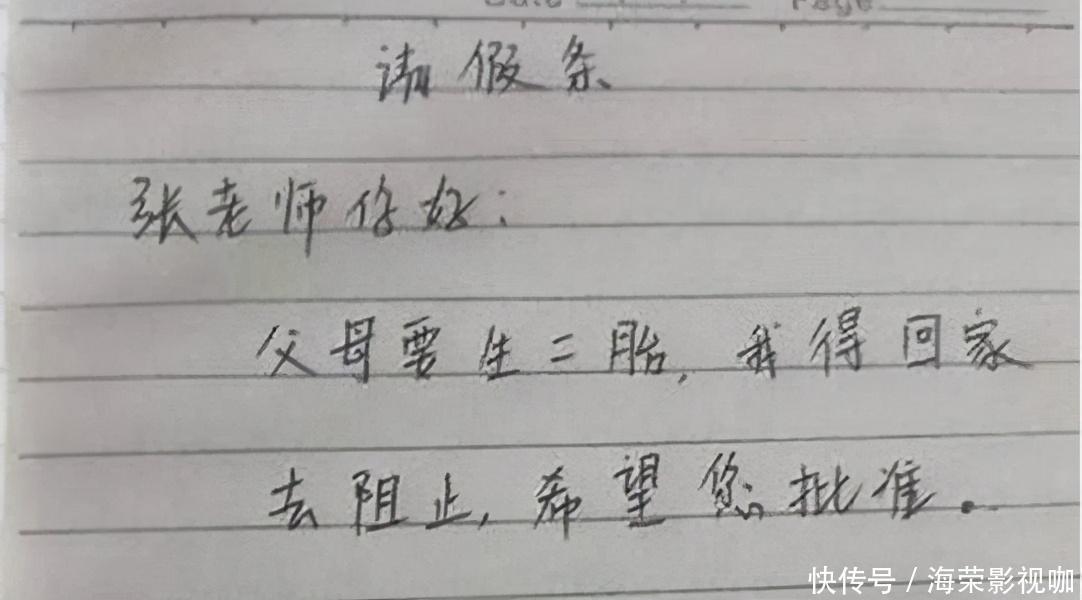 请假条
张老师你好：
父母要生二胎，我得回家
去阻止，希望您批准。
快传号 / 海荣影视咖